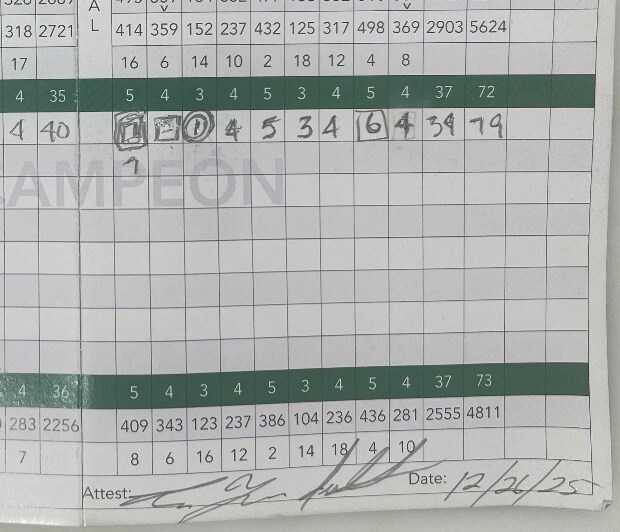 A
318 2721 L 414 359 152 237 432 125 317 498 369 2903 5624
17 16 6 14 10 2 18 12 4 8
4 35 5 4 3 4 5 3 4 5 4 37 72
4 40 1 4 5 3 4 6 4 39 79
7
CAMPEÓN
4 36 5 4 3 4 5 3 4 5 4 37 73
283 2256 409 343 123 237 386 104 236 436 281 2555 4811
7 8 6 16 12 2 14 18 4 10
Attest: Date: 12/26/25